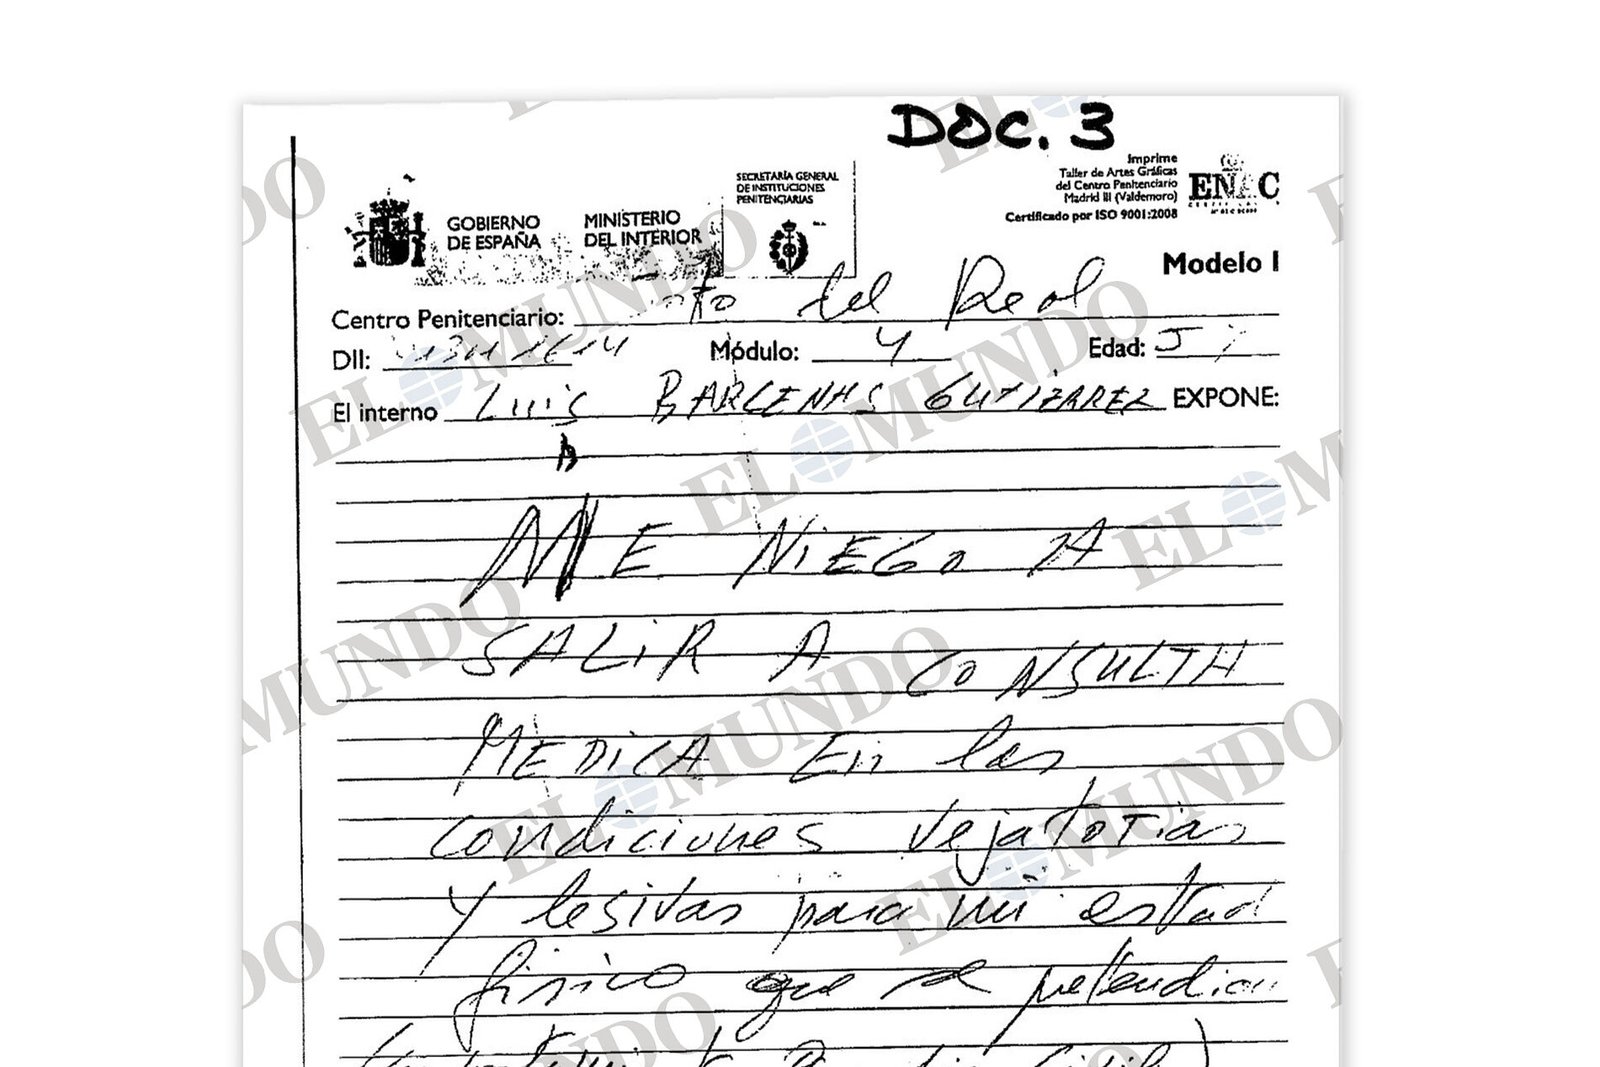 DOC. 3
GOBIERNO
DE ESPAÑA
MINISTERIO
DEL INTERIOR
SECRETARÍA GENERAL
DE INSTITUCIONES
PENITENCIARIAS
Imprime
Taller de Artes Gráficas
del Centro Penitenciario
Madrid III (Valdemoro)
Certificado por ISO 9001:2008
ENAC
Modelo I
Centro Penitenciario: del Real
DII: Módulo: 4 Edad: 57
El interno Luis BARCENAS GUTIERREZ EXPONE:
ME NIEGO A
SALIR A CONSULTA
MEDICA En las
condiciones vejatorias
y lesivas para mi estad
físico que se pretendian
EL MUNDO